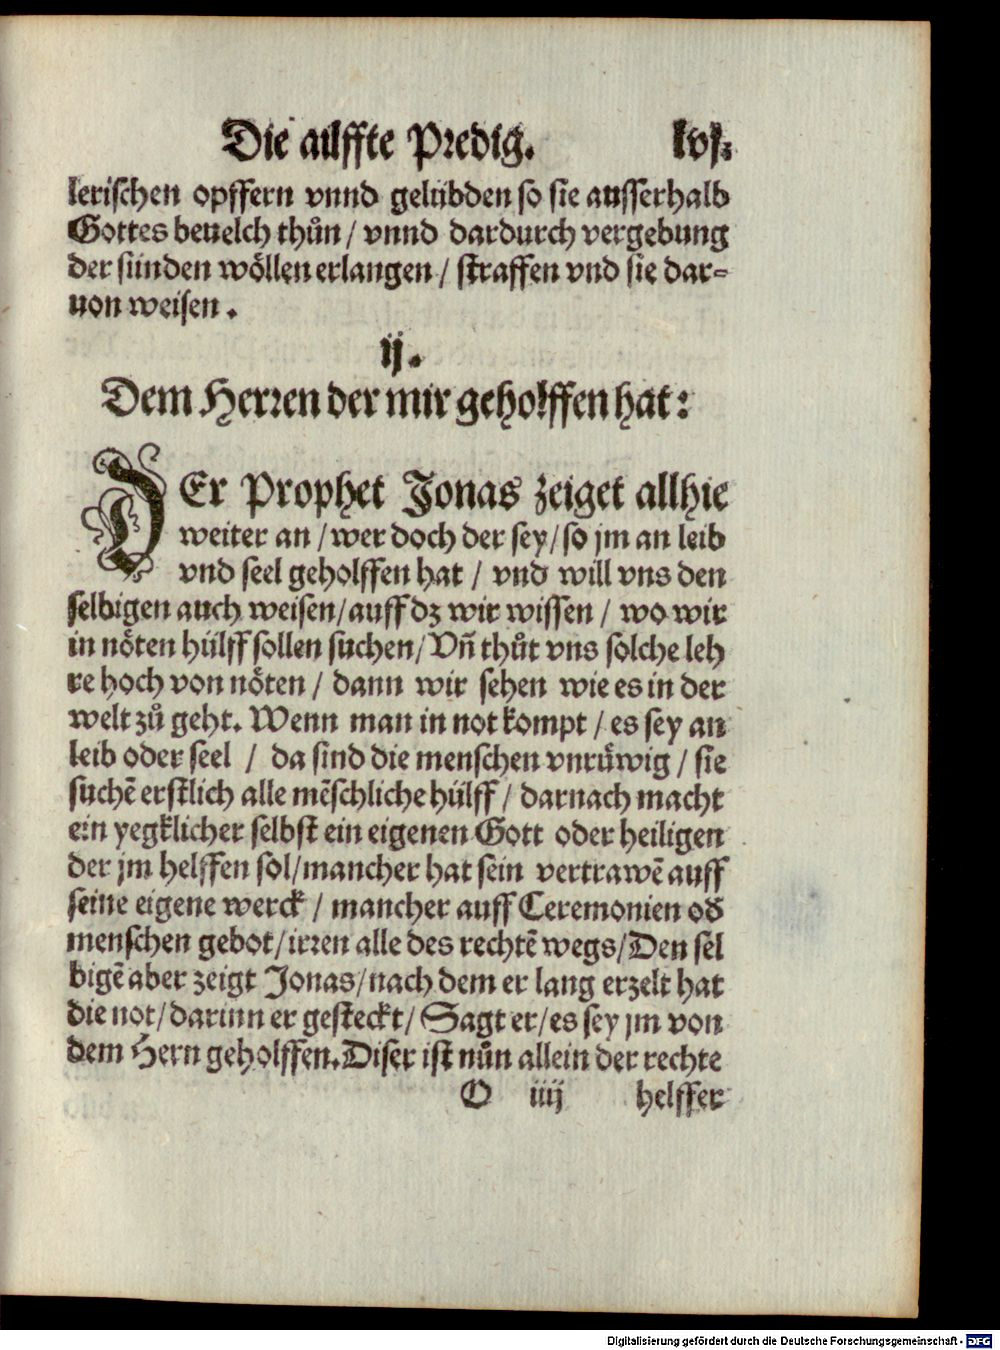 Die ailffte Predig. lvj.
lerischen opffern vnnd gelübden so sie ausserhalb
Gottes beuelch thůn / vnnd dardurch vergebung
der sünden wöllen erlangen / straffen vnd sie dar=
uon weisen.
ij.
Dem Herren der mir geholffen hat:
DEr Prophet Jonas zeiget allhie
weiter an / wer doch der sey / so jm an leib
vnd seel geholffen hat / vnd will vns den
selbigen auch weisen / auff dz wir wissen / wo wir
in nöten hülff sollen suchen / Vñ thůt vns solche leh
re hoch von nöten / dann wir sehen wie es in der
welt zů geht. Wenn man in not kompt / es sey an
leib oder seel / da sind die menschen vnrüwig / sie
suchẽ erstlich alle mẽschliche hülff / darnach macht
ein yegklicher selbst ein eigenen Gott oder heiligen
der jm helffen sol / mancher hat sein vertrawẽ auff
seine eigene werck / mancher auff Ceremonien od
menschen gebot / irren alle des rechtẽ wegs / Den sel
bigẽ aber zeigt Jonas / nach dem er lang erzelt hat
die not / darinn er gesteckt / Sagt er / es sey jm von
dem Hern geholffen. Diser ist nůn allein der rechte
O iiij helffer
Digitalisierung gefördert durch die Deutsche Forschungsgemeinschaft - DFG